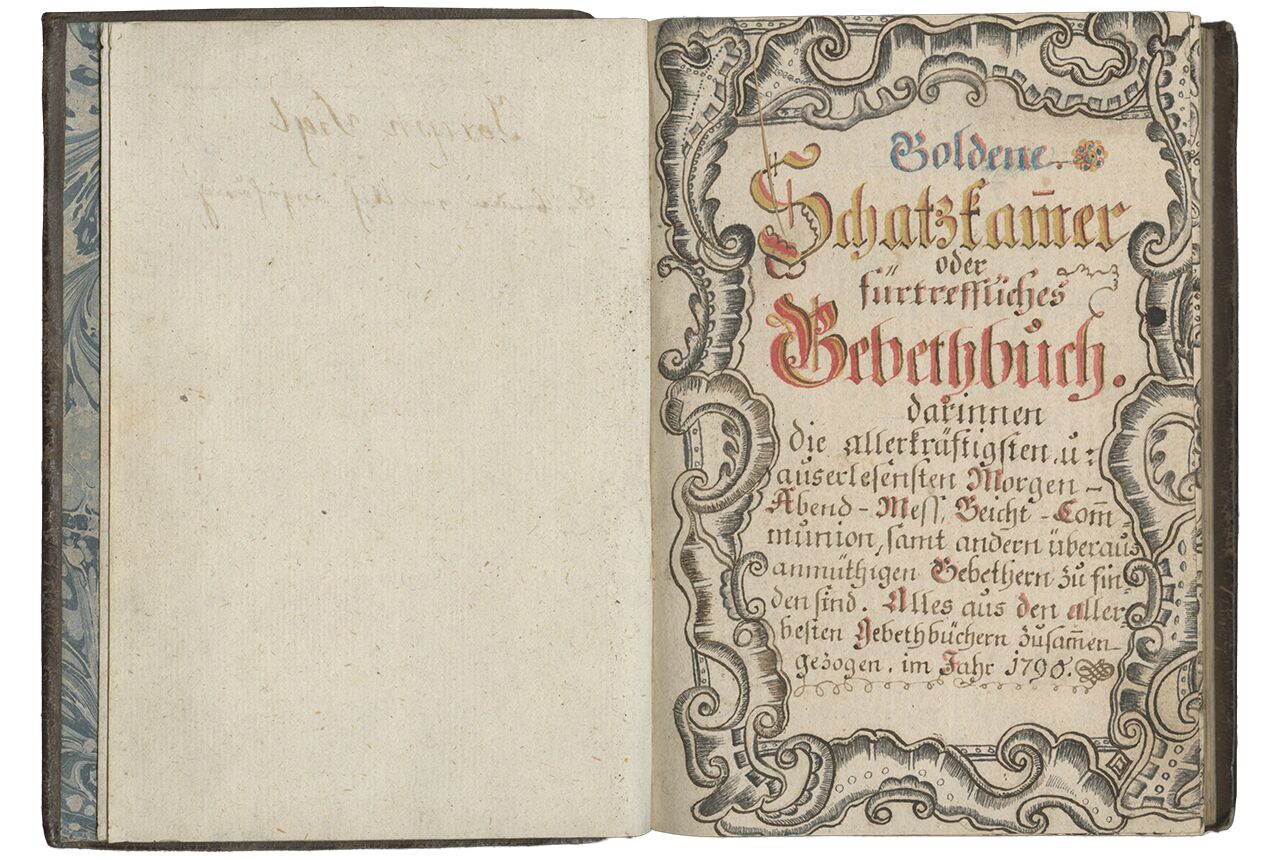 Goldene
Schatzkam̅er
oder
fürtreffliches
Gebethbuch.
darinnen
die allerkräftigsten u:
auserlesensten Morgen-
Abend-Mess, Beicht-Com̅-
munion, samt andern überaus
anmüthigen Gebethern zu fin-
den sind. Alles aus den aller
besten Gebethbüchern zusam̅en
gezogen. im Jahr 1790.